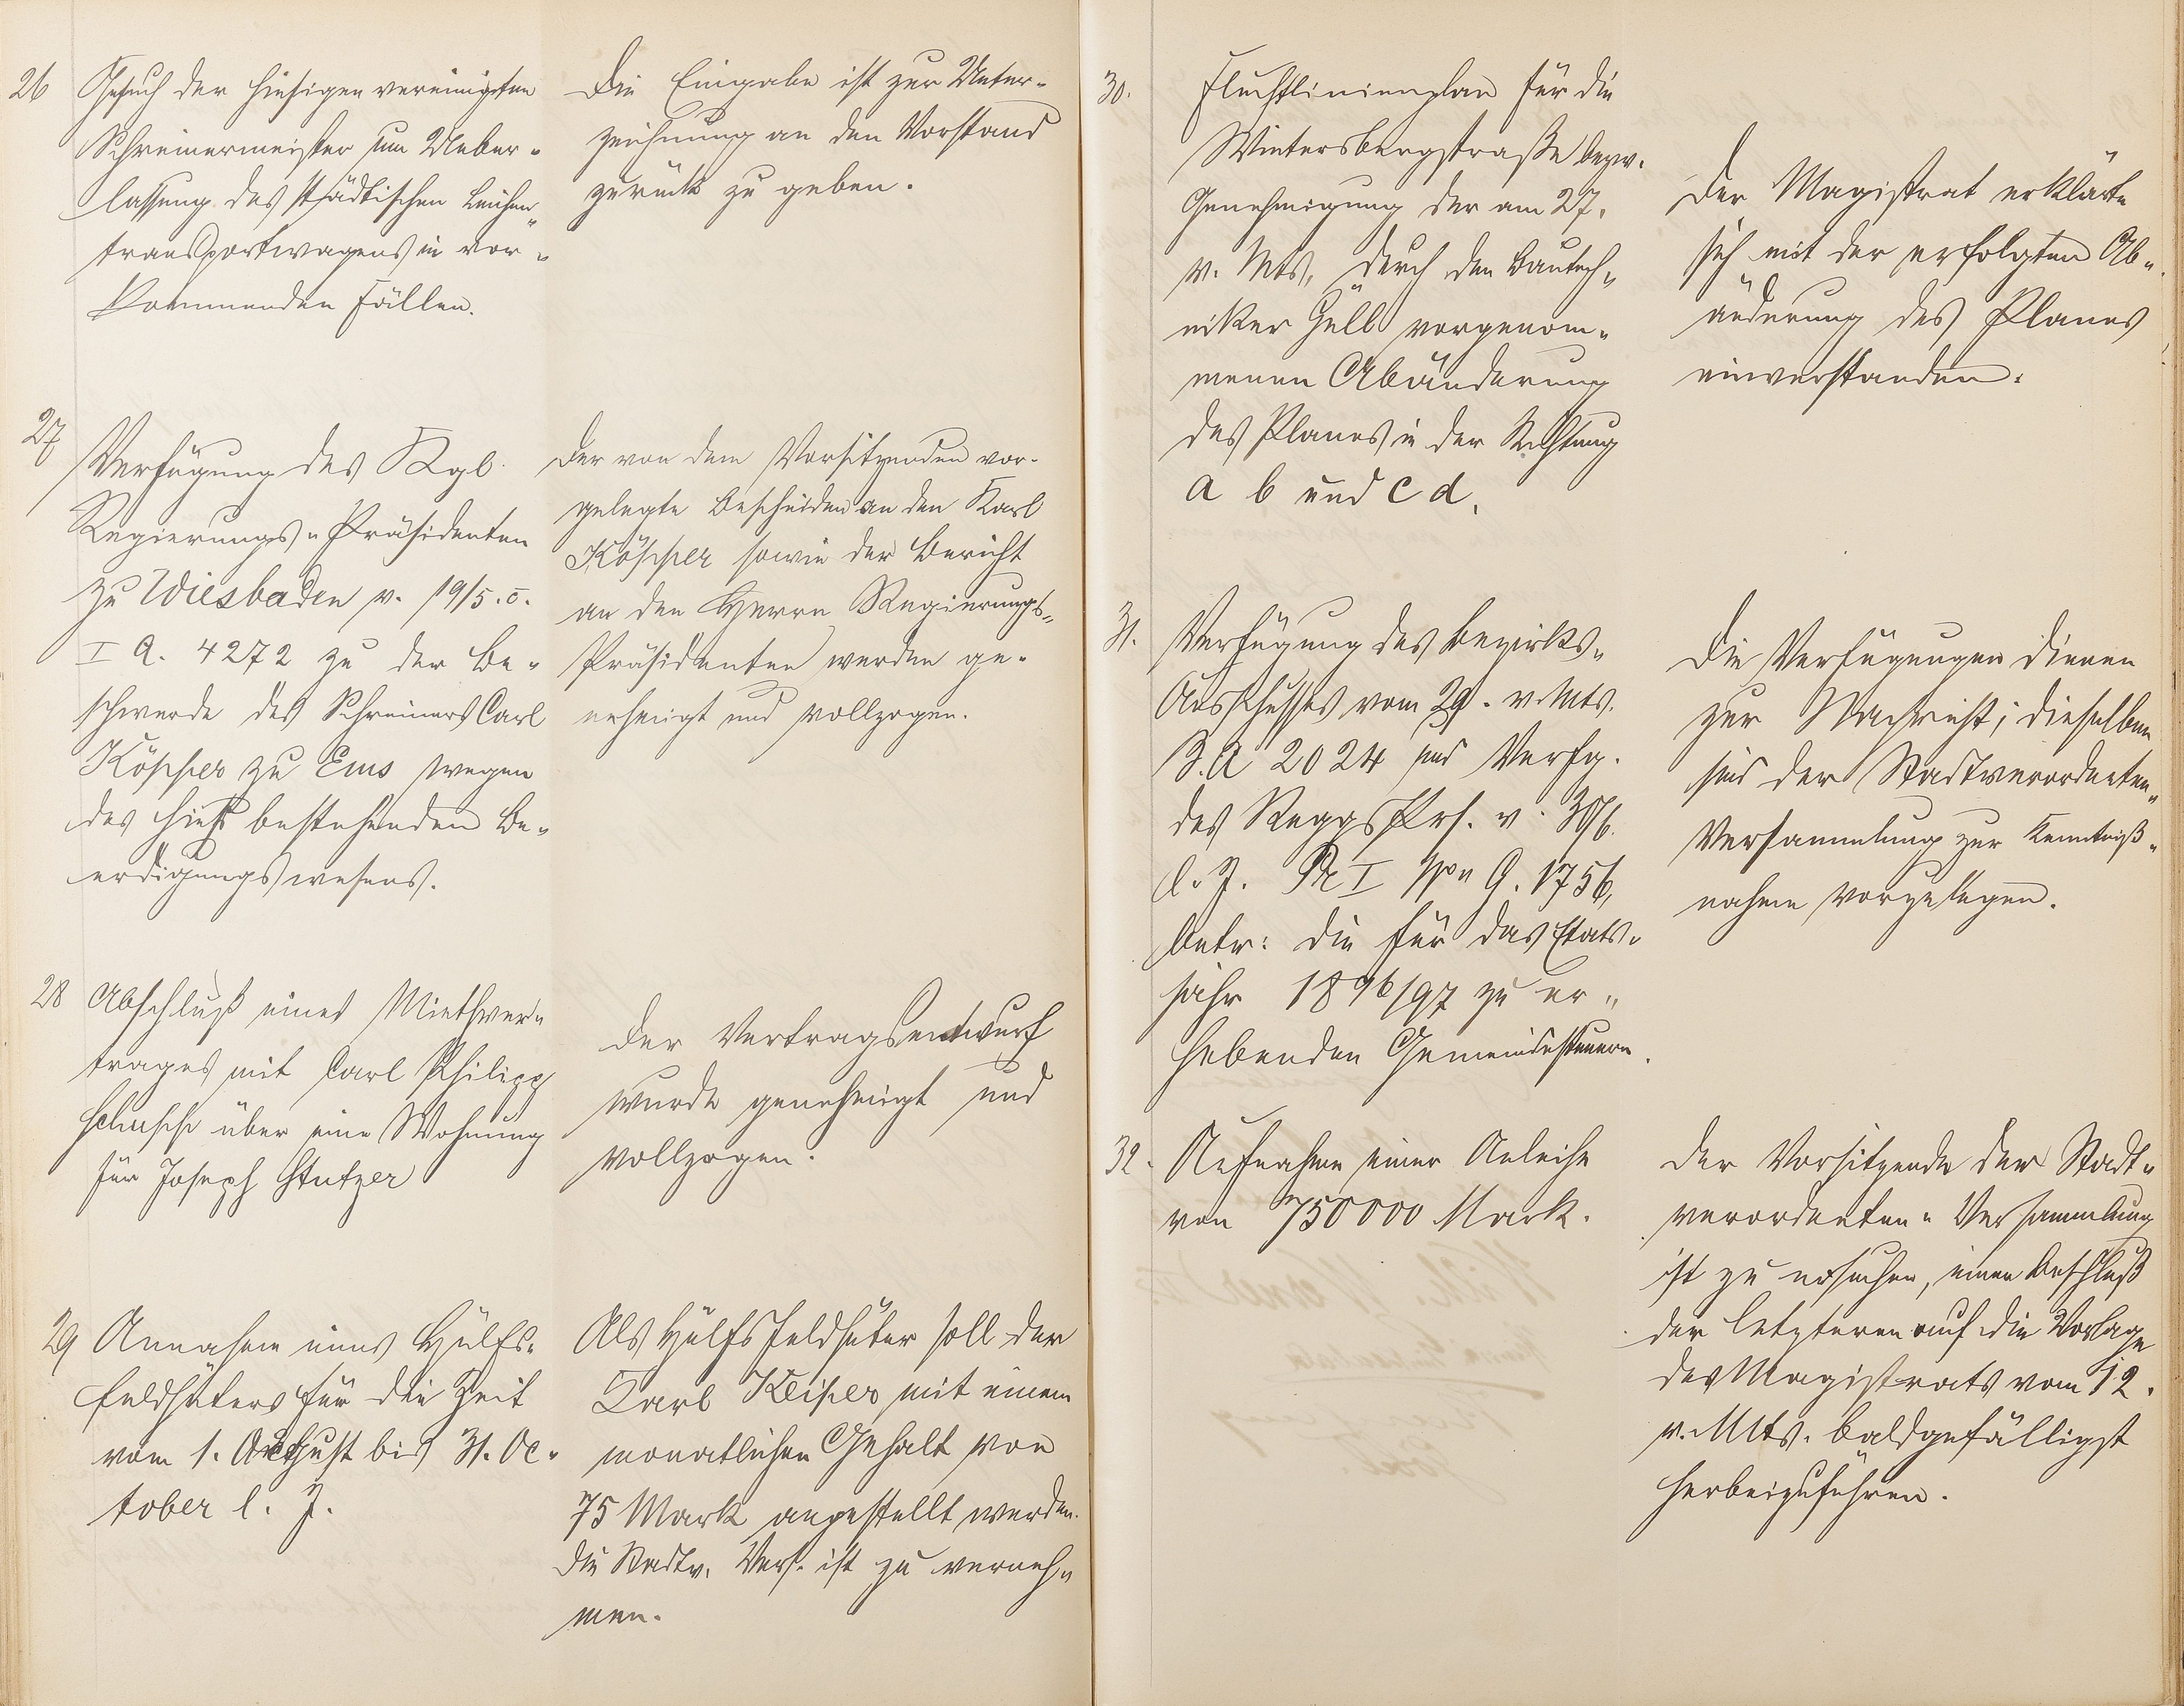 26 Gesuch der hiesigen vereinigten
Schreinermeister um Ueber-
lassung des städtischen Leichen-
transportwagens in vor-
kommenden Fällen.
Die Eingabe ist zur Unter-
zeichnung an den Vorstand
zurück zu geben.
27 Verfügung des Kgl.
Regierungs-Präsidenten
zu Wiesbaden v. 19/5. c.
I A. 4272 zu der Be-
schwerde des Schreiners Carl
Köpper zu Ems wegen
des hier bestehenden Be-
erdigungswesens.
Der von dem Vorsitzenden vor-
gelegte Bescheid an den Karl
Köpper sowie der Bericht
an den Herrn Regierungs-
Präsidenten werden ge-
nehmigt und vollzogen.
28 Abschluß eines Miethver-
trages mit Carl Philipp
über eine Wohnung
für Joseph Stutzer
Der Vertragsentwurf
wurde genehmigt und
vollzogen.
29 Annahme eines Hülfs-
feldhüters für die Zeit
vom 1. August bis 31. Oc-
tober l. J.
Als Hülfsfeldhüter soll der
Karl Keiper mit einem
monatlichen Gehalt von
75 Mark angestellt werden.
Die Stadtv. Vers. ist zu verneh-
men.
30. Fluchtlinienplan für die
Wintersbergstraße bezw.
Genehmigung der am 27.
v. Mts. durch den Bautech-
niker Gull vorgenom-
menen Abänderung
des Planes in der Richtung
a b und c d.
Der Magistrat erklärte
sich mit der erfolgten Ab-
änderung des Planes
einverstanden.
31. Verfügung des Bezirks-
Ausschusses vom 29. v. Mts.
B. A 2024 und Verfg.
des Reggs Prs. v. 30/6.
l. J. Pr I G. 1756,
betr: die für das Etats-
jahr 1896/97 zu er-
hebenden Gemeindesteuern.
Die Verfügungen dienen
zur Nachricht; dieselben
sind der Stadtverordneten-
Versammlung zur Kenntniß-
nahme vorzulegen.
32. Aufnahme einer Anleihe
von 750000 Mark.
Der Vorsitzende der Stadt-
verordneten-Versammlung
ist zu ersuchen, einen Beschluß
der letzteren auf die Vorlage
des Magistrats vom 12.
v. Mts. baldgefälligst
herbeizuführen.